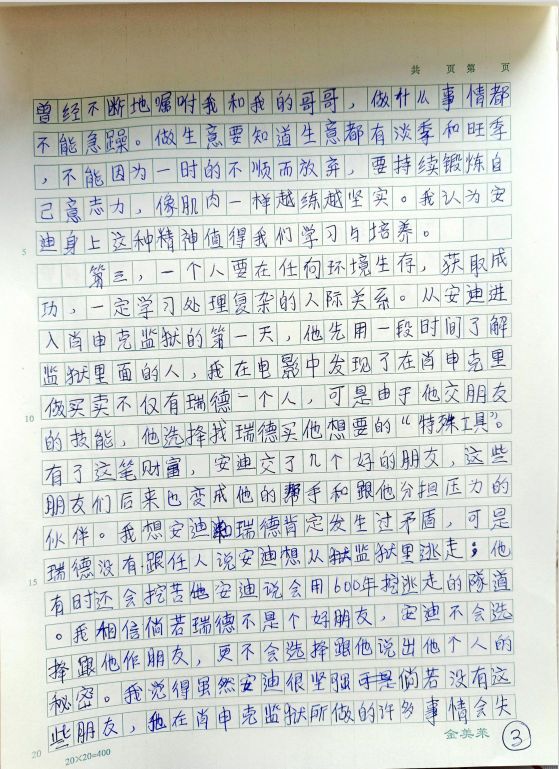 共 页 第 页
曾经不断地嘱咐我和我的哥哥，做什么事情都
不能急躁。做生意要知道生意都有淡季和旺季
，不能因为一时的不顺而放弃，要持续锻炼自
己意志力，像肌肉一样越练越坚实。我认为安
5 迪身上这种精神值得我们学习与培养。
第三，一个人要在任何环境生存，获取成
功，一定学习处理复杂的人际关系。从安迪进
入肖申克监狱的第一天，他先用一段时间了解
监狱里面的人，我在电影中发现了在肖申克里
10 做买卖不仅有瑞德一个人，可是由于他交朋友
的技能，他选择找瑞德买他想要的“特殊工具”。
有了这笔财富，安迪交了几个好的朋友，这些
朋友们后来也变成他的帮手和跟他分担压力的
伙伴。我想安迪和瑞德肯定发生过矛盾，可是
15 瑞德没有跟任人说安迪想从监狱里逃走；他
有时还会挖苦安迪说会用600年挖逃走的隧道
。我相信倘若瑞德不是个好朋友，安迪不会选
择跟他作朋友，更不会选择跟他说出他个人的
秘密。我觉得虽然安迪很坚强倘若没有这
20 些朋友，他在肖申克监狱所做的许多事情会失
20×20=400
金英莱
3